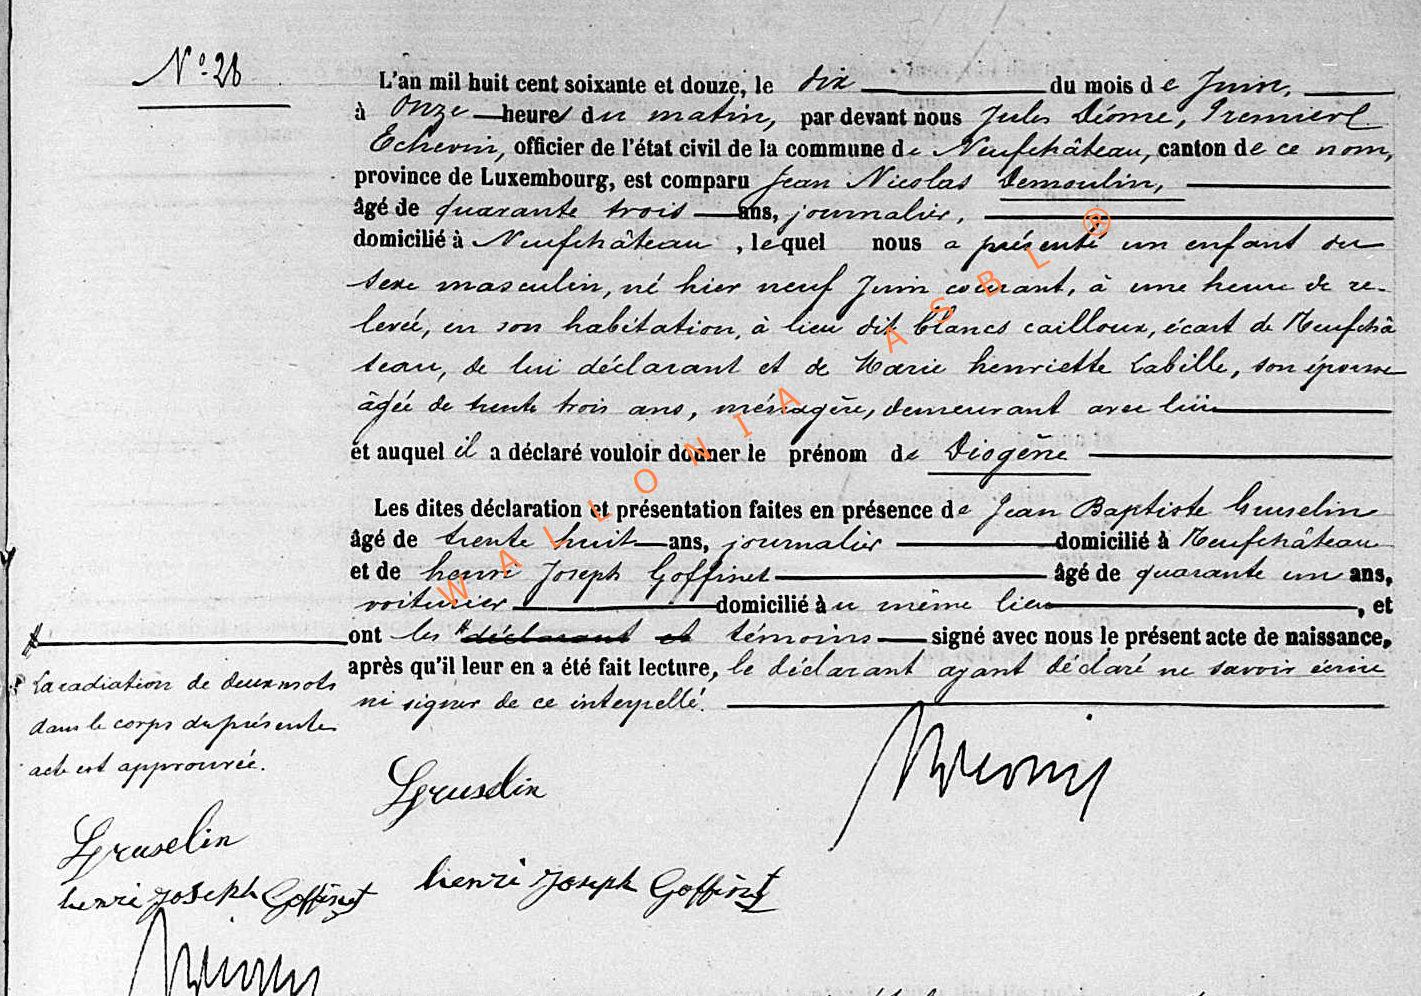 N° 28
L'an mil huit cent soixante et douze, le dix du mois de Juin,
à Onze heures du matin, par devant nous Jules Déome, Premier
Echevin, officier de l'état civil de la commune de Neufchâteau, canton de ce nom,
province de Luxembourg, est comparu Jean Nicolas Demoulin,
âgé de quarante trois ans, journalier,
domicilié à Neufchâteau, lequel nous a présenté un enfant du
sexe masculin, né hier neuf Juin courant, à une heure de re-
levée, en son habitation, à lieu dit blancs cailloux, écart de Neufchâ
teau, de lui déclarant et de Marie henriette Labille, son épouse
âgée de trente trois ans, ménagère, demeurant avec lui
et auquel il a déclaré vouloir donner le prénom de Diogène
Les dites déclaration et présentation faites en présence de Jean Baptiste Gruselin
âgé de trente huit ans, journalier domicilié à Neufchâteau
et de henri Joseph Goffinet âgé de quarante un ans,
voiturier domicilié au même lieu, et
ont les déclarant et témoins signé avec nous le présent acte de naissance,
après qu'il leur en a été fait lecture, le déclarant ayant déclaré ne savoir écrire
ni signer de ce interpellé.
La radiation de deux mots
dans le corps du présente
acte est approuvée.
Gruselin
Gruselin
henri Joseph Goffinet
henri joseph Goffinet
WALLONIA ASBL ®